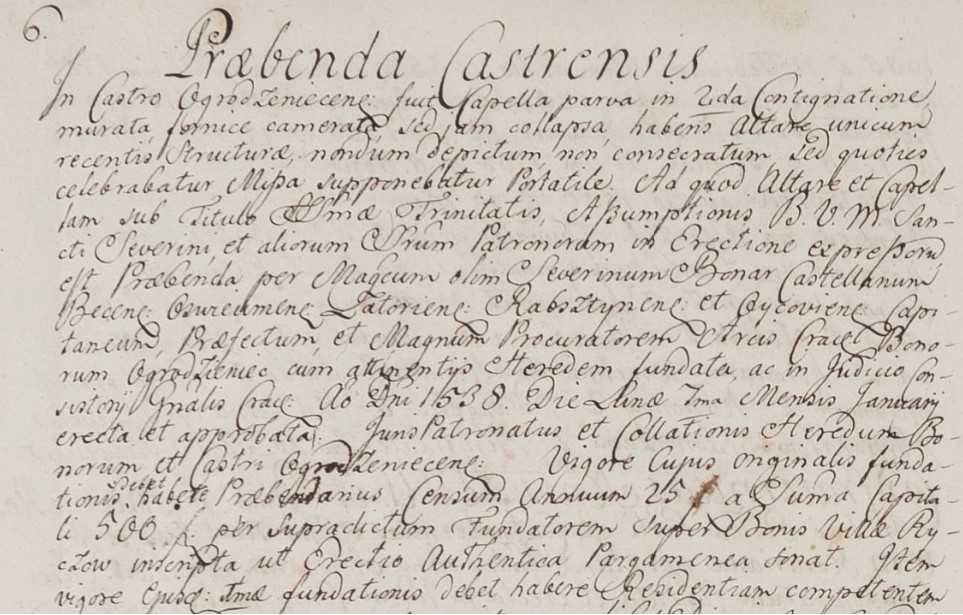 6.
Præbenda Castrensis
In Castro Ogrodzeniecen: fuit Capella parva in 2da Contignatione,
murata fornice camerata, sed jam collapsa habens Altare unicum
recentis Structuræ, nondum depictum, non consecratum, sed quoties
celebrabatur Missa supponebatur Portatile. Ad quod Altare et Capel-
lam sub Titulo SSmæ Trinitatis, Assumptionis B. V. M. San-
cti Severini, et aliorum SSrum Patronorum in Erectione expressoru
est Præbenda per Magcum olim Severinum Bonar Castellanum
Becen: Osviecimen: Zatorien: Rabsztynen: et Oycovien: Capi-
taneum, Præfectum, et Magnum Procuratorem Arcis Cracet Bono-
rum Ogrodzieniec cum attinentijs Heredem fundata, ac in Judicio Con-
sistorij Gnalis Crac: Ao Dni 1538. Die Lunæ 7ma Mensis Januarij
erecta et approbata. Juris Patronatus et Collationis Heredum Bo-
norum et Castri Ogrodzeniecen: Vigore cujus originalis funda-
tionis debet habere Præbendarius Censum Annuum 25 a Suma Capita-
li 500 f. per supradictum Fundatorem super Bonis Villæ Ry-
czow inscripta ut Erectio Authentica Pargamenea sonat. Item
vigore Ejusq: fundationis debet habere Residentiam competentem